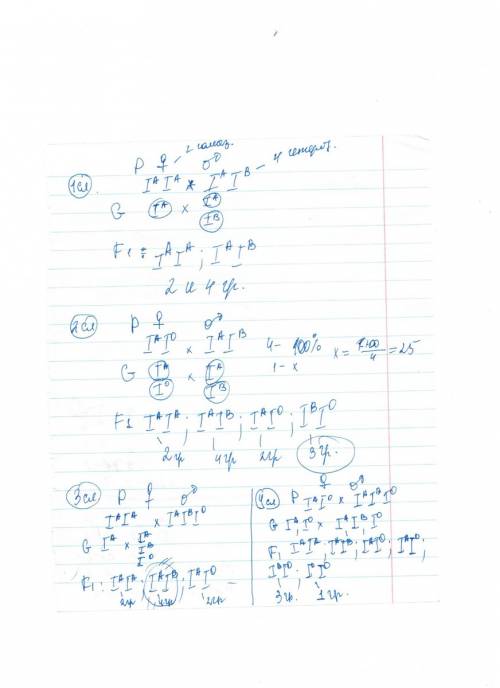 P ♀ 2 гомоз. ♂
1 сл. IᴬIᴬ × IᴬIᴮ – 4 гетероз.
G Iᴬ × Iᴬ
Iᴮ
F₁ : IᴬIᴬ ; IᴬIᴮ
2 и 4 гр.
2 сл P ♀ ♂
IᴬI⁰ × IᴬIᴮ
4 – 100%
1 – x
x = 1·100/4 = 25
G Iᴬ × Iᴬ
I⁰ Iᴮ
F₁ IᴬIᴬ ; IᴬIᴮ ; IᴬI⁰ ; IᴮI⁰
2 гр 4 гр 2 гр 3 гр.
3 сл P ♀ ♂
IᴬIᴬ × IᴬIᴮI⁰
G Iᴬ × Iᴬ
Iᴮ
I⁰
F₁ : IᴬIᴬ ; IᴬIᴮ ; IᴬI⁰
2 гр 4 гр 2 гр
♀ ♂
4 сл P IᴬI⁰ × IᴬIᴮI⁰
G Iᴬ, I⁰ × Iᴬ, Iᴮ, I⁰
F₁ IᴬIᴬ ; IᴬIᴮ ; IᴬI⁰ ; IᴬI⁰ ;
IᴮI⁰ ; I⁰I⁰
3 гр. 1 гр.